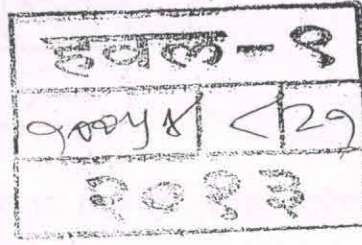 हवल-१
१००५४
२०१३